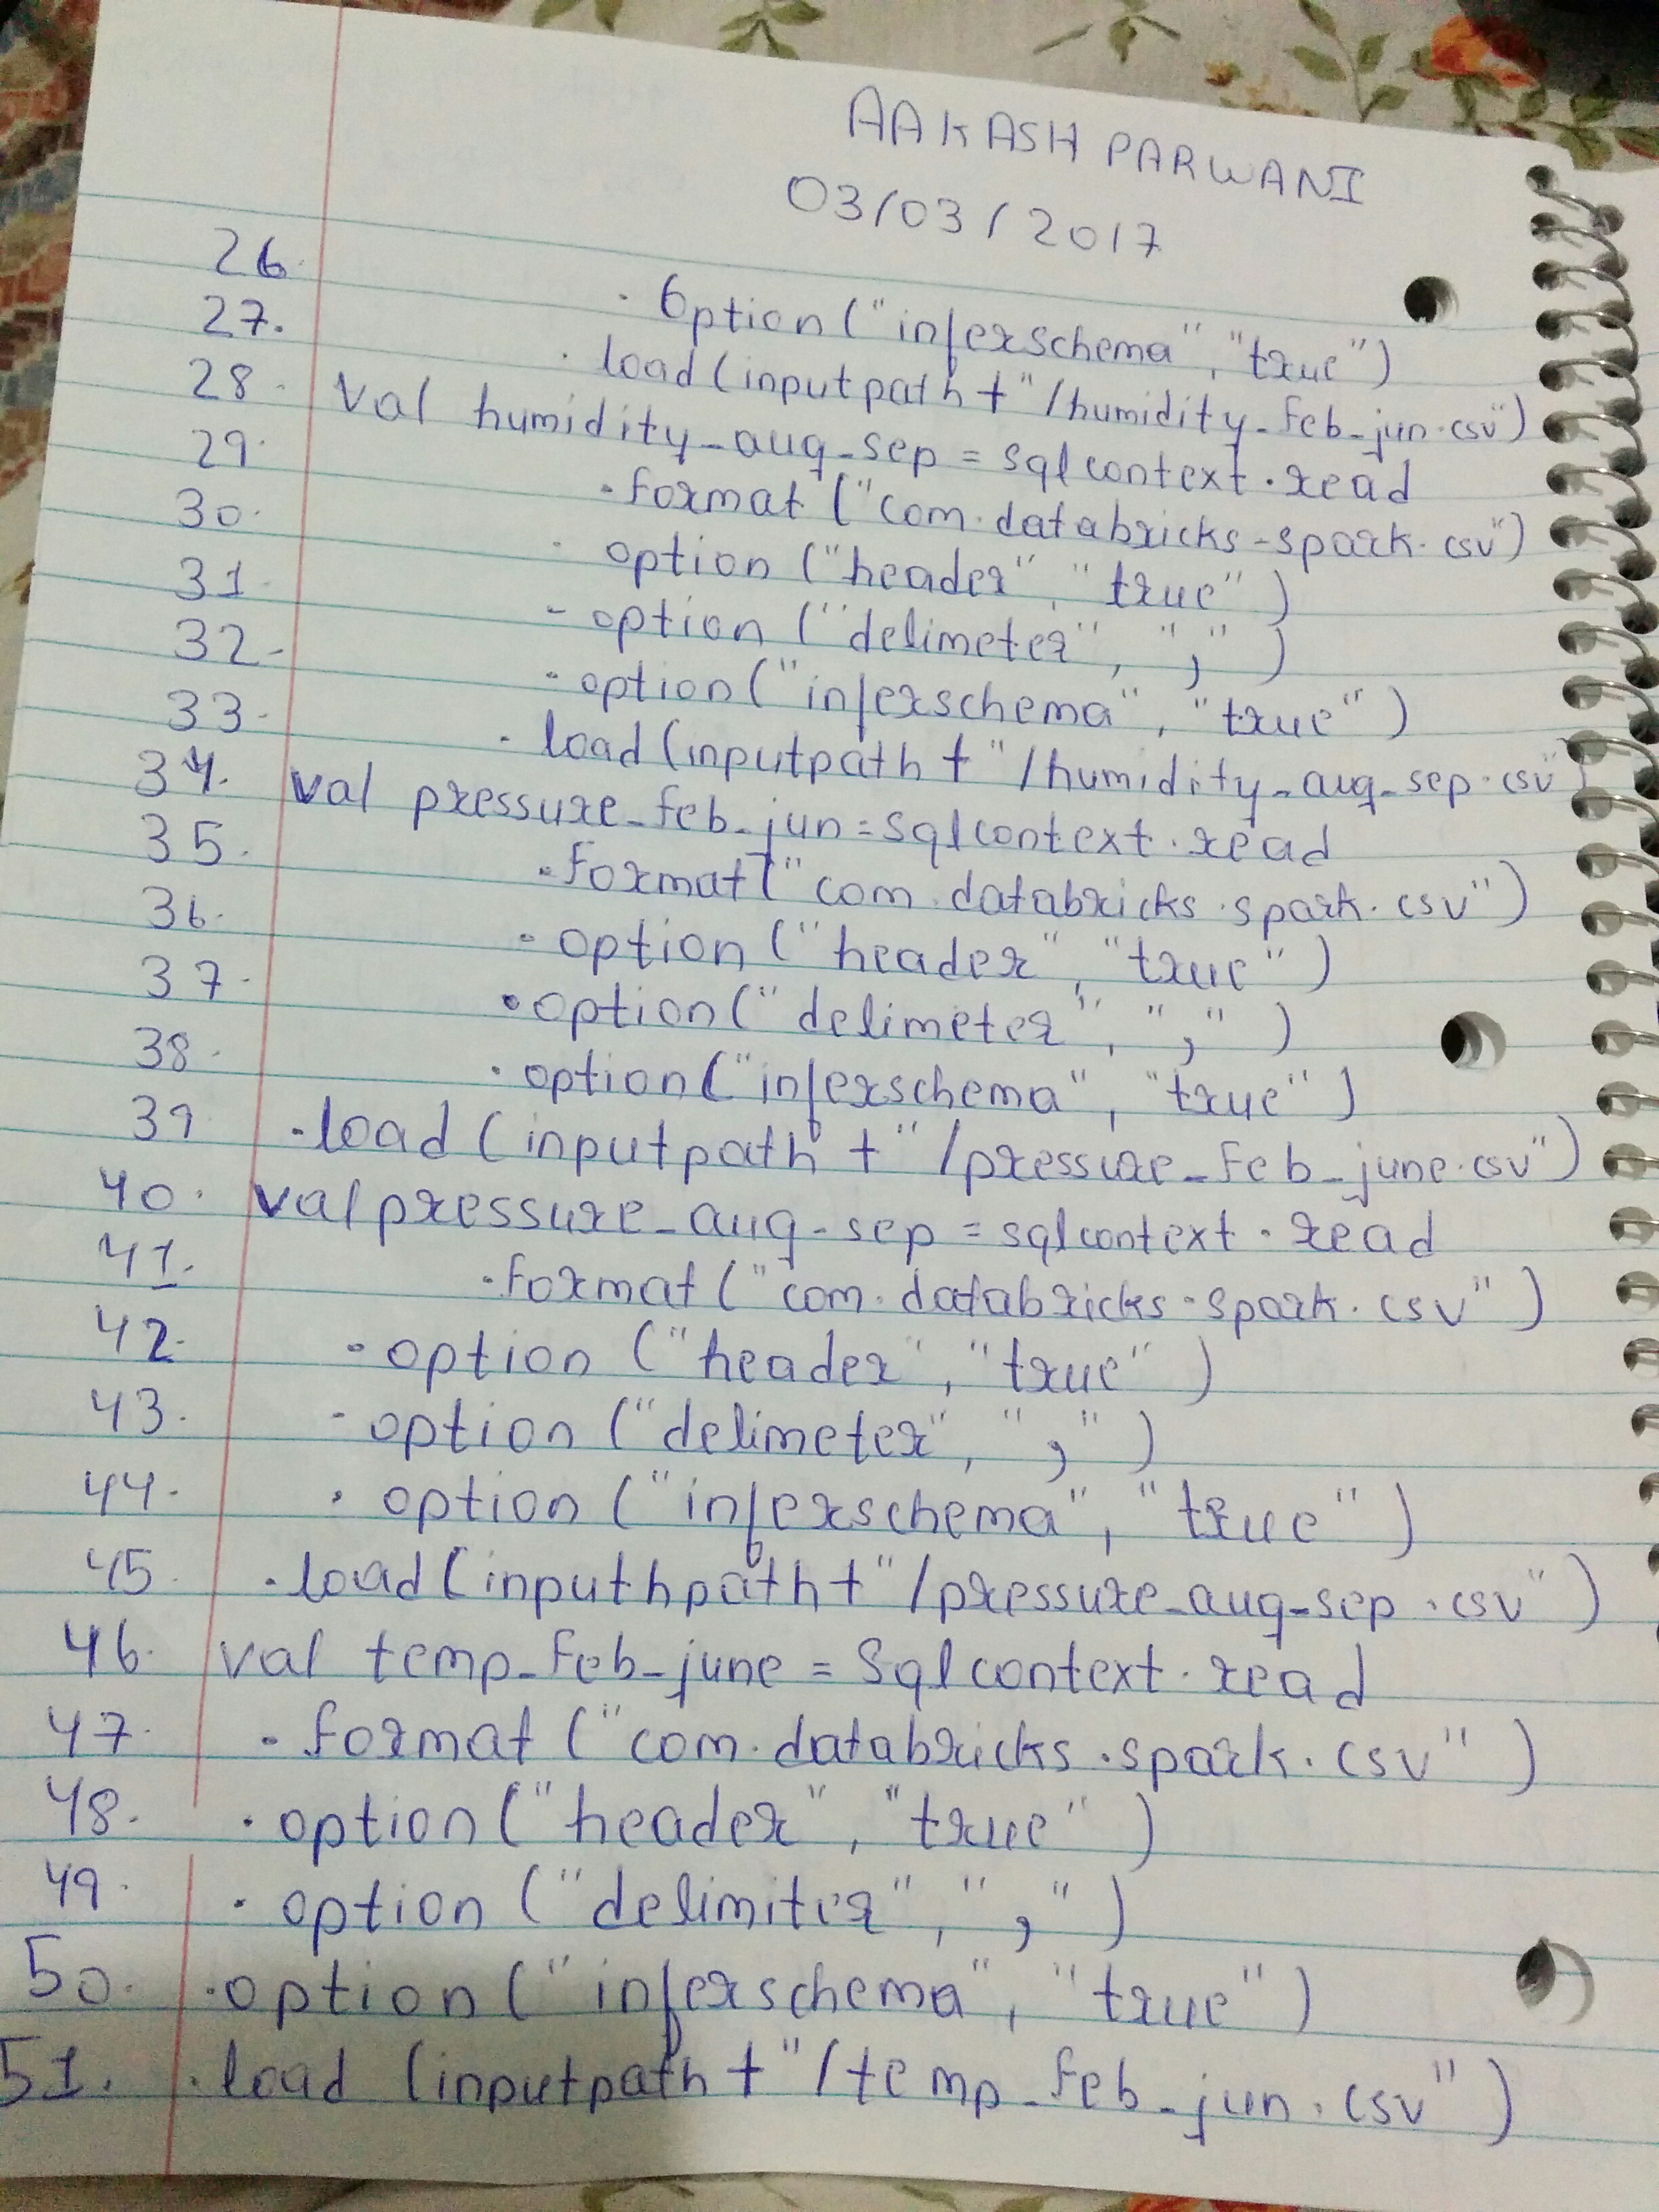 AAKASH PARWANI
03/03/2017
26. .Option("inferschema", "true")
27. .load(inputpath+"/humidity_feb_jun.csv")
28. val humidity_aug_sep = sqlcontext.read
29. .format("com.databricks-spark.csv")
30. .option("header", "true")
31. -option("delimeter", ",")
32. -option("inferschema", "true")
33. .load(inputpath+"/humidity_aug_sep.csv")
34. val pressure_feb_jun=sqlcontext.read
35. .format("com.databricks.spark.csv")
36. .option("header", "true")
37. .option("delimeter", ",")
38. .option("inferschema", "true")
39 .load(inputpath+"/pressure_feb_june.csv")
40. val pressure_aug_sep = sqlcontext.read
41. .format("com.databricks.spark.csv")
42. .option("header", "true")
43. -option("delimeter", ",")
44. .option("inferschema", "true")
45. .load(inputhpath+"/pressure_aug_sep.csv")
46. val temp_feb_june = Sqlcontext.read
47. .format("com.databricks.spark.csv")
48. .option("header", "true")
49. .option("delimiter", ",")
50. .option("inferschema", "true")
51. .load(inputpath+"/temp_feb_jun.csv")